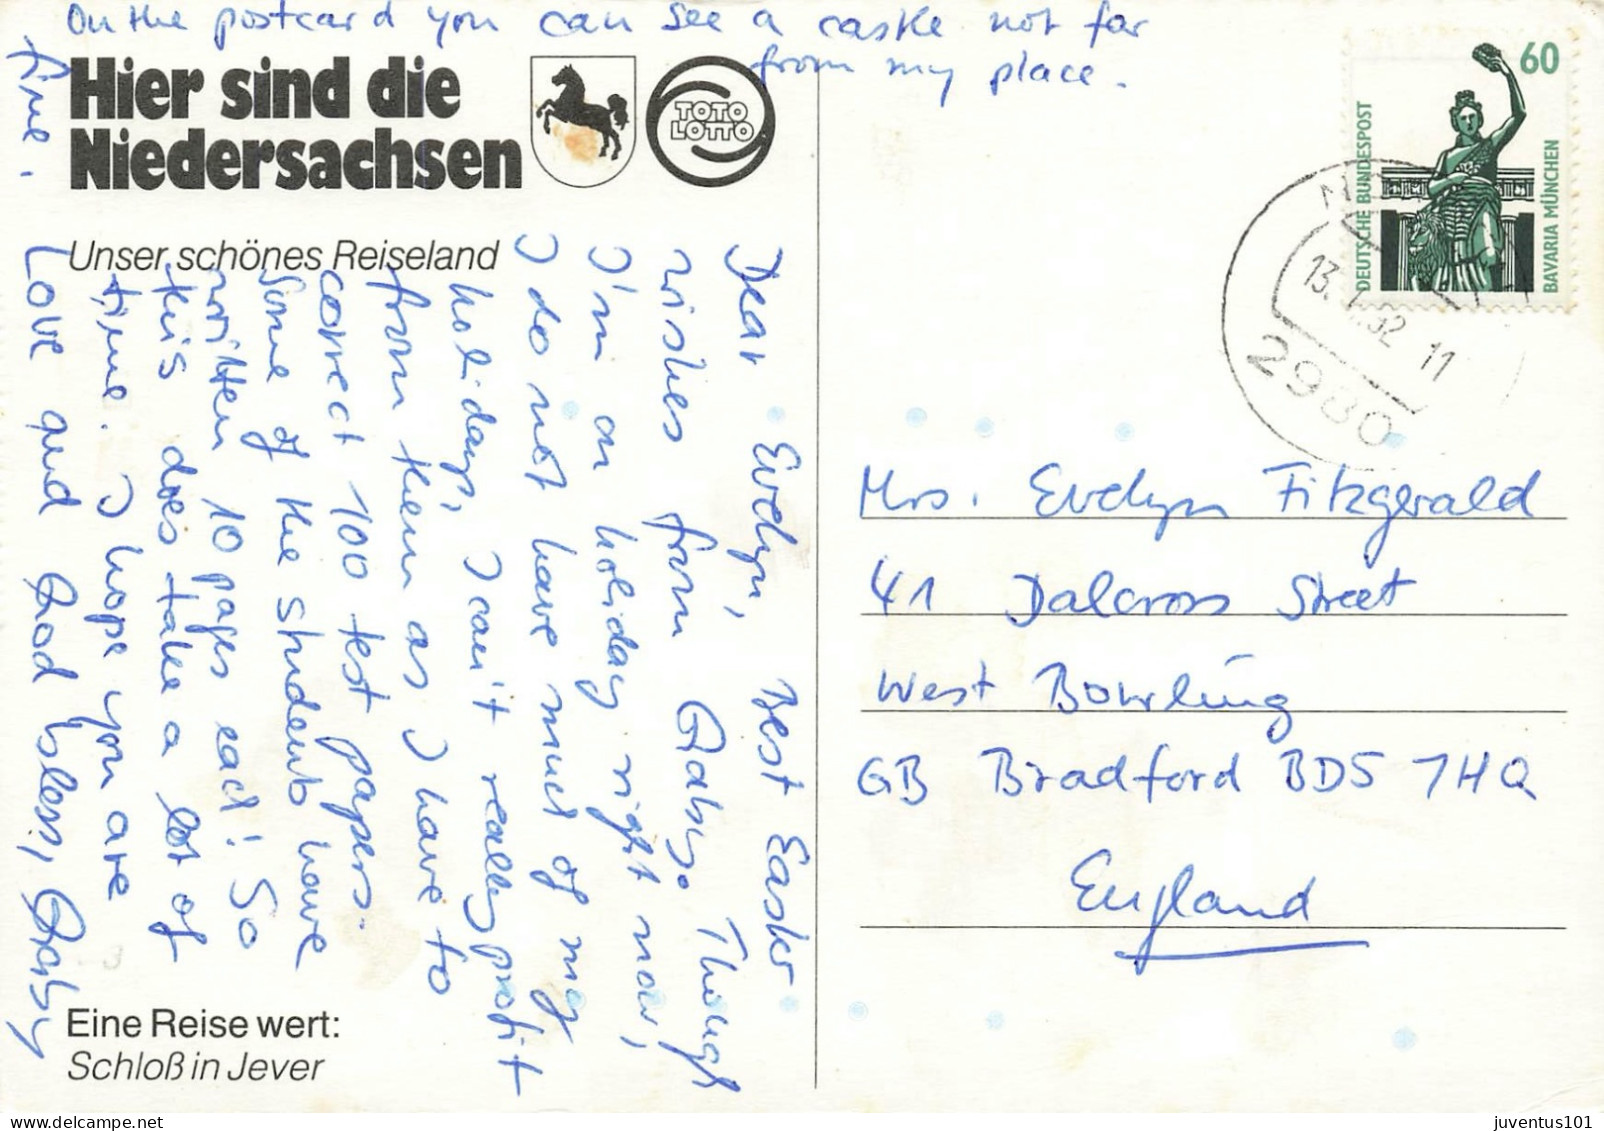 On the postcard you can see a castle not far
from my place.
Hier sind die
Niedersachsen
TOTO
LOTTO
Unser schönes Reiseland
Dear Evelyn, Best Easter
wishes from Gaby. Though
I'm on holiday right now,
I do not have much of my
holidays, I can't really profit
from them as I have to
correct 100 test papers.
Some of the students have
written 10 pages each! So
this does take a lot of
time. I hope you are
fine.
Love and God bless, Gaby
Eine Reise wert:
Schloß in Jever
60
DEUTSCHE BUNDESPOST
BAVARIA MÜNCHEN
13.
92 11
2980
Mrs. Evelyn Fitzgerald
41 Dalcross Street
West Bowling
GB Bradford BD5 7HQ
England
juventus101